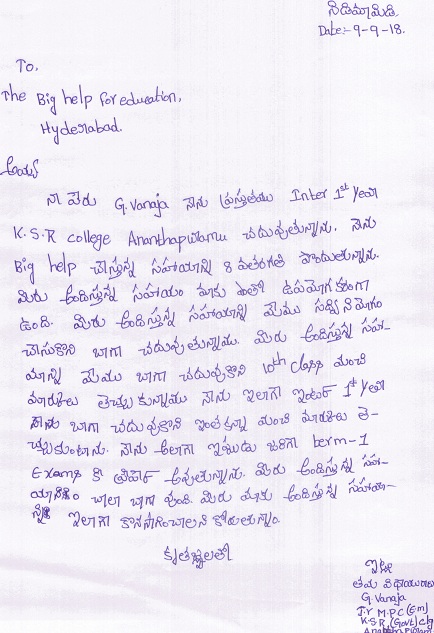 నిడిమామిడి.
Date:- 9-9-18.
To,
The Big help for education,
Hyderabad.
అయ్య
నా పేరు G. Vanaja నేను ప్రస్తుతము Inter 1st Year
K.S.R college Ananthapuramu చదువుతున్నాను. నేను
Big help చేస్తున్న సహాయాన్ని 8 వతరగతి పొందుతున్నాను.
మీరు అందిస్తున్న సహాయం మాకు ఎంతో ఉపయోగకరంగా
ఉంది. మీరు అందిస్తున్న సహాయాన్ని మేము సద్వినియోగం
చేసుకొని బాగా చదువుతున్నాము. మీరు అందిస్తున్న సహా-
యాన్ని మేము బాగా చదువుకొని 10th class మంచి
మార్కులు తెచ్చుకున్నాము నేను ఇలాగే ఇంటర్ 1st Year
నేను బాగా చదువుకొని ఇంతకన్నా మంచి మార్కులు తె-
చ్చుకుంటాను. నేను అలాగే ఇప్పుడు జరిగే term-1
Exams కి ప్రిపేర్ అవుతున్నాను. మీరు అందిస్తున్న సహా-
యానికం చాలా బాగా వుంది. మీరు మాకు అందిస్తున్న సహాయా-
న్ని ఇలాగే కొనసాగించాలని కోరుతున్నాం.
కృతజ్ఞతలతో
ఇట్లు
తమ విధేయురాలు
G. Vanaja
Jr M.P.C (Em)
K.S.R (Govt) clg